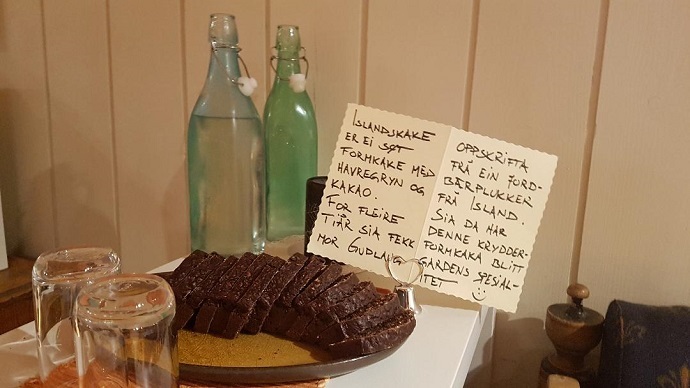 ISLANDSKAKE
ER EI SØT
FORMKAKE MED
HAVREGRYN OG
KAKAO.
FOR FLEIRE
TIÅR SIA FEKK
MOR GUDLAUG
OPPSKRIFTA
FRÅ EIN JORD-
BÆRPLUKKER
FRÅ ISLAND.
SIA DA HAR
DENNE KRYDDER-
FORMKAKA BLITT
GARDENS SPESIAL-
ITET